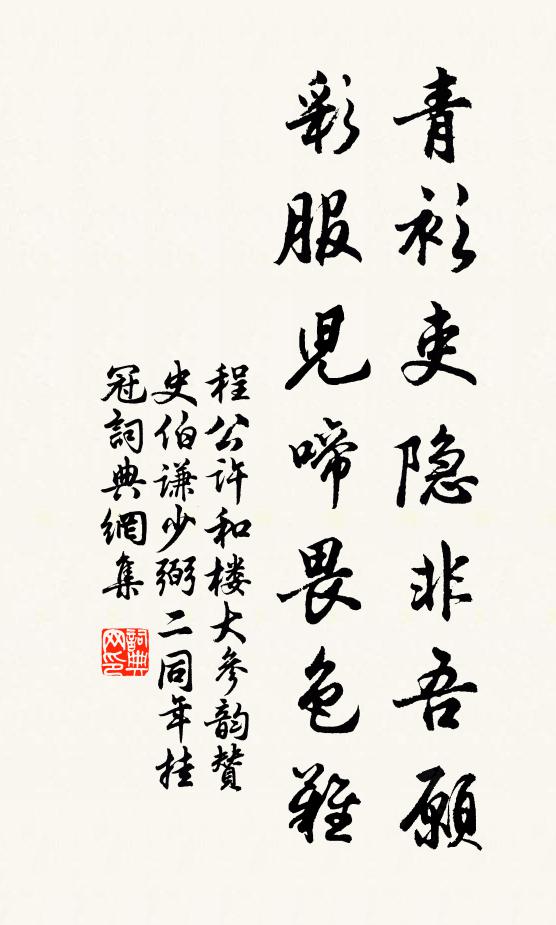 青衫吏隐非吾願
彩服児啼畏色難
程公许和楼大参韵贊
史伯谦少弼二同年挂
冠詞典網集
詞典网印